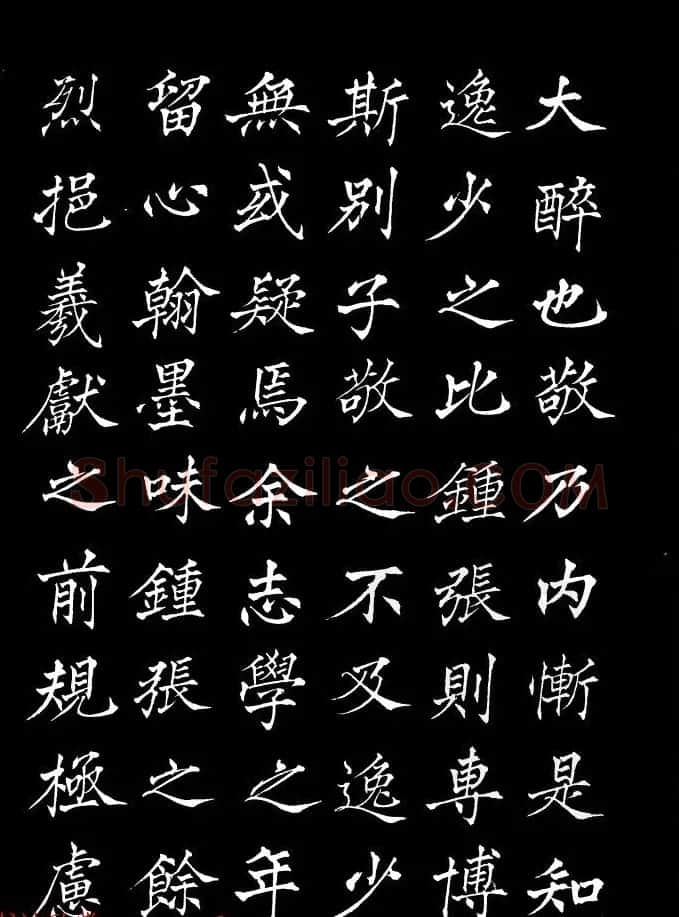 大醉也敬乃内慚是知
逸少之比鍾張則專博
斯別子敬之不及逸少
無或疑焉余志學之年
留心翰墨味鍾張之餘
烈挹羲獻之前規極慮
Shufaziliao.COM